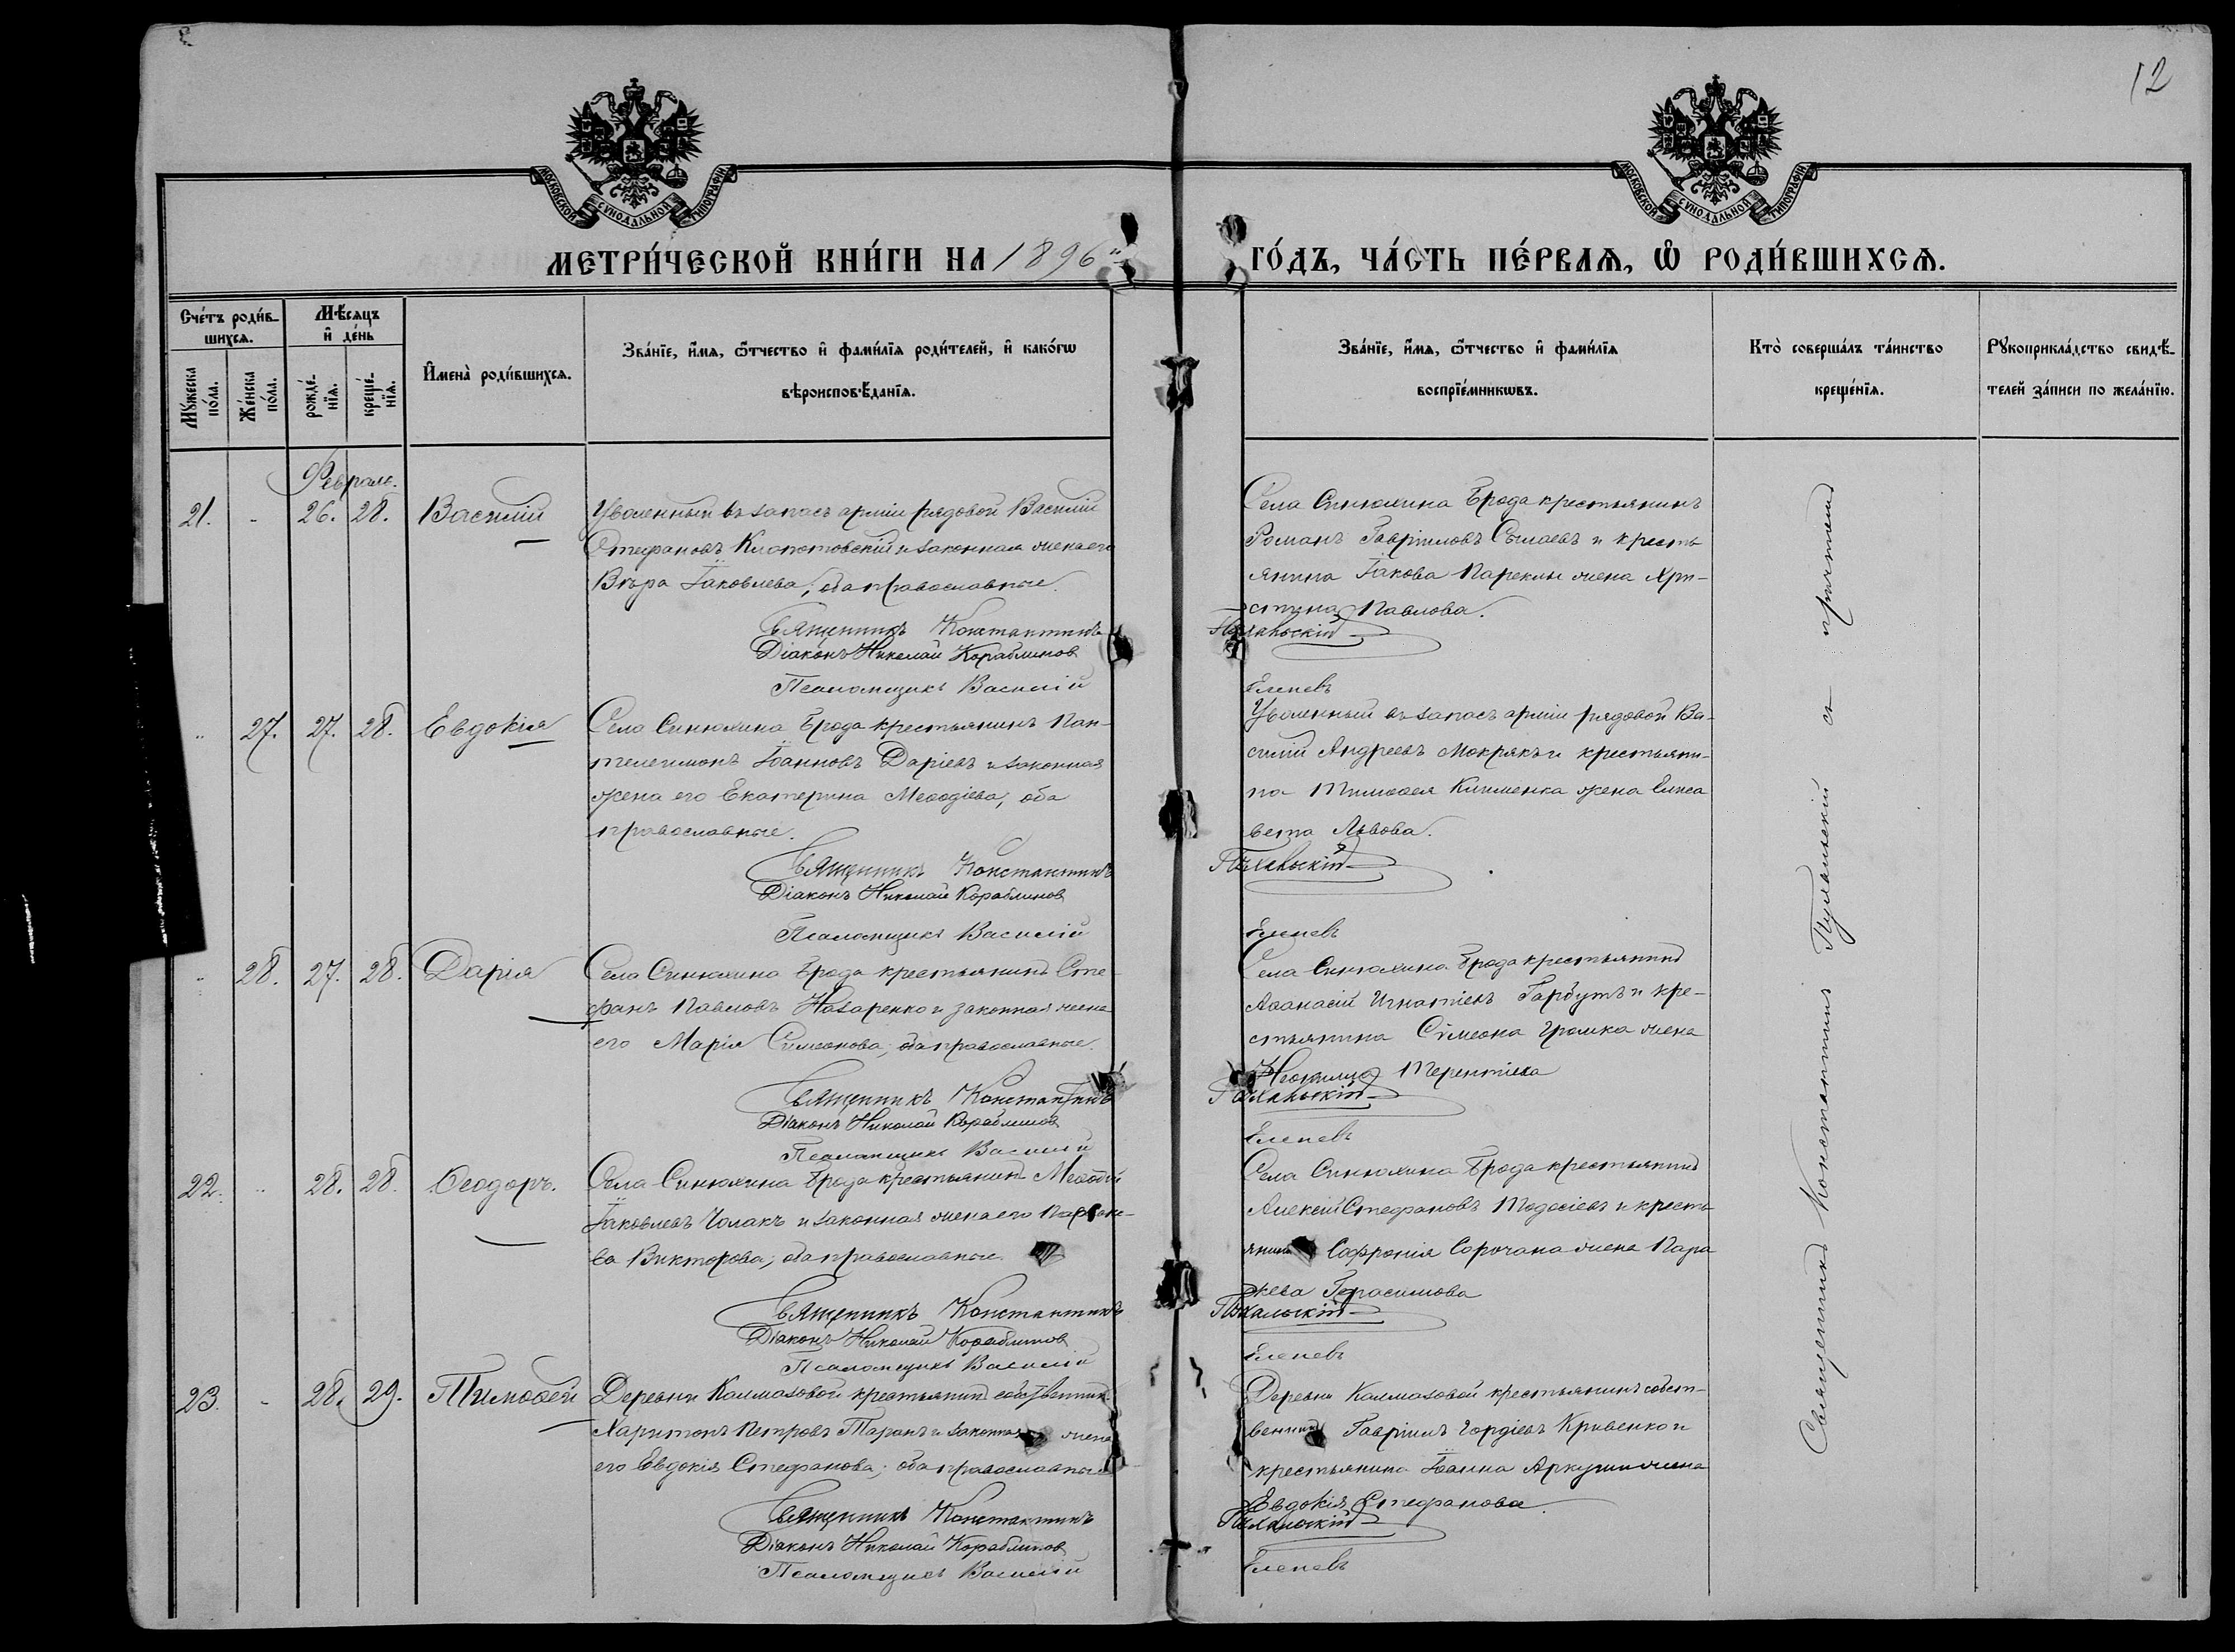 12
МОСКОВСКОЙ СѴНОДАЛЬНОЙ ТИПОГРАФІИ
МОСКОВСКОЙ СѴНОДАЛЬНОЙ ТИПОГРАФІИ
МЕТРИ́ЧЕСКОЙ КНИ́ГИ НА 1896й ГО́ДЪ, ЧА́СТЬ ПЕ́РВАѦ, Ѡ РОДИ́ВШИХСѦ.
Сче́тъ роди́в-
шихсѧ.
Мꙋ́жеска по́ла.
Же́нска по́ла.
Мѣ́сѧцъ
и҆ де́нь
рожде́-
нїѧ.
креще́-
нїѧ.
И҆мена̀ роди́вшихсѧ.
Зва́нїе, и҆́мѧ, ѻ҆́тчество и҆ фами́лїѧ роди́телей, и҆ како́гѡ
вѣроисповѣ́данїѧ.
Зва́нїе, и҆́мѧ, ѻ҆́тчество и҆ фами́лїѧ
воспрїе́мникѡвъ.
Кто̀ соверша́лъ та́инство
креще́нїѧ.
Рꙋкоприкла́дство свидѣ́-
телей за́писи по жела́нїю.
Февраль.
21. - 26. 28. Василій
Уволенный въ запасъ арміи рядовой Василій
Стефановъ Клопотовскій и законная жена его
Вѣра Іаковлева; оба православные.
Священникъ Константинъ
Діаконъ Николай Кораблинов
Псаломщикъ Василій
Села Синюхина Брода крестьянинъ
Романъ Гавріиловъ и кресть
янина Іакова жена Хри-
стина Павлова.
Пухальскій
Еленевъ
" 27. 27. 28. Евдокія
Села Синюхина Брода крестьянинъ Пан-
телеимонъ Іоанновъ Даріевъ и законная
жена его Екатерина Меѳодіева, оба
православные.
Священникъ Константинъ
Діаконъ Николай Кораблинов
Псаломщикъ Василій
Уволенный въ запасъ арміи рядовой Ва-
силій Андреевъ Мокрякъ и крестьяни-
на Тимоѳея Клименка жена Елиса
вета Львова.
Пухальскій
Еленевъ
" 28. 27. 28. Дарія
Села Синюхина Брода крестьянинъ Сте-
фанъ Павловъ Назаренко и законная жена
его Марія Симеонова; оба православные.
Священникъ Константинъ
Діаконъ Николай Кораблинов
Псаломщикъ Василій
Села Синюхина Брода крестьянинъ
Аѳанасій Игнатіевъ Гарбузъ и кре-
стьянина Сѵмеона Громка жена
Неонила Терентіева
Пухальскій
Еленевъ
22. " 28. 28. Ѳеодоръ.
Села Синюхина Брода крестьянинъ Меѳодій
Іаковлевъ Чолакъ и законная жена его Параске-
ва Викторова; оба православные.
Священникъ Константинъ
Діаконъ Николай Кораблинов
Псаломщикъ Василій
Села Синюхина Брода крестьянинъ
Алексій Стефановъ Тодосіевъ и кресть
янина Софронія Сорочана жена Пара
скева Герасимова
Пухальскій
Еленевъ
23. - 28. 29. Тимоѳей
Деревни Калмазовой крестьянинъ собственник
Харитонъ Петровъ Таранъ и законная жена
его Евдокія Стефанова; оба православные
Священникъ Константинъ
Діаконъ Николай Кораблинов
Псаломщикъ Василій
Деревни Калмазовой крестьянинъ собст-
венникъ Гавріилъ Гордіевъ Кривенко и
крестьянина Іоанна жена
Евдокія Стефанова.
Пухальскій
Еленевъ
Священникъ Константинъ Пухальскій съ причтомъ